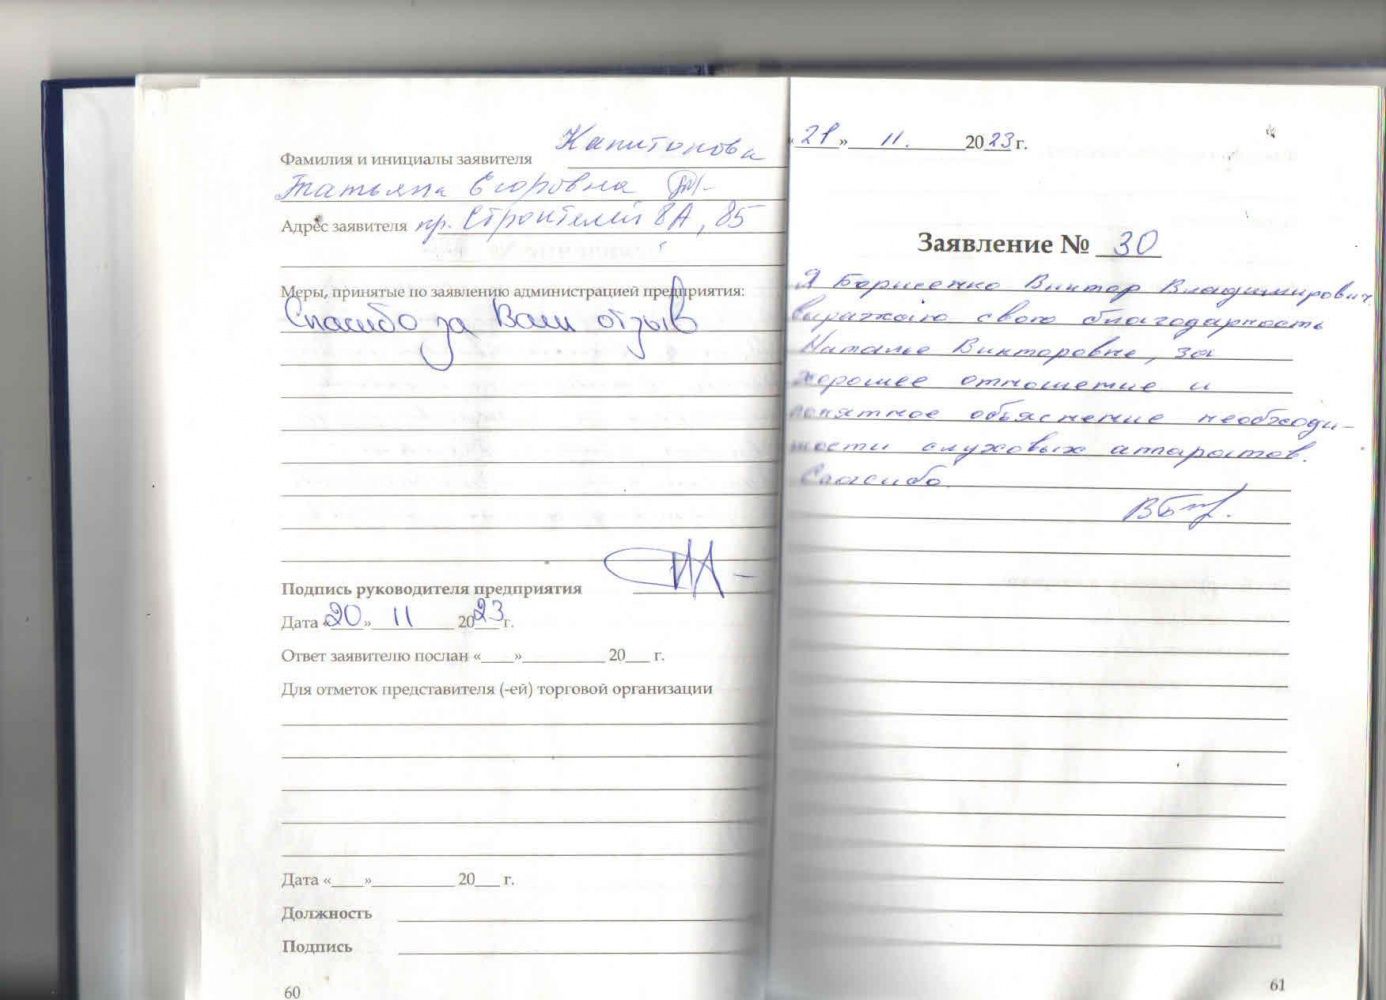 Фамилия и инициалы заявителя Капитонова
Татьяна Егоровна
Адрес заявителя пр. Строителей 8А, 85
Меры, принятые по заявлению администрацией предприятия:
Спасибо за Ваш отзыв
Подпись руководителя предприятия
Дата «20» 11 2023 г.
Ответ заявителю послан «____»__________ 20___ г.
Для отметок представителя (-ей) торговой организации
Дата «____»__________ 20___ г.
Должность
Подпись
60
«21» 11. 2023 г.
Заявление № 30
Я Борисенко Виктор Владимирович
выражаю свою благодарность
Наталье Викторовне, за
хорошее отношение и
понятное объяснение необходи-
мости слуховых аппаратов.
Спасибо
61